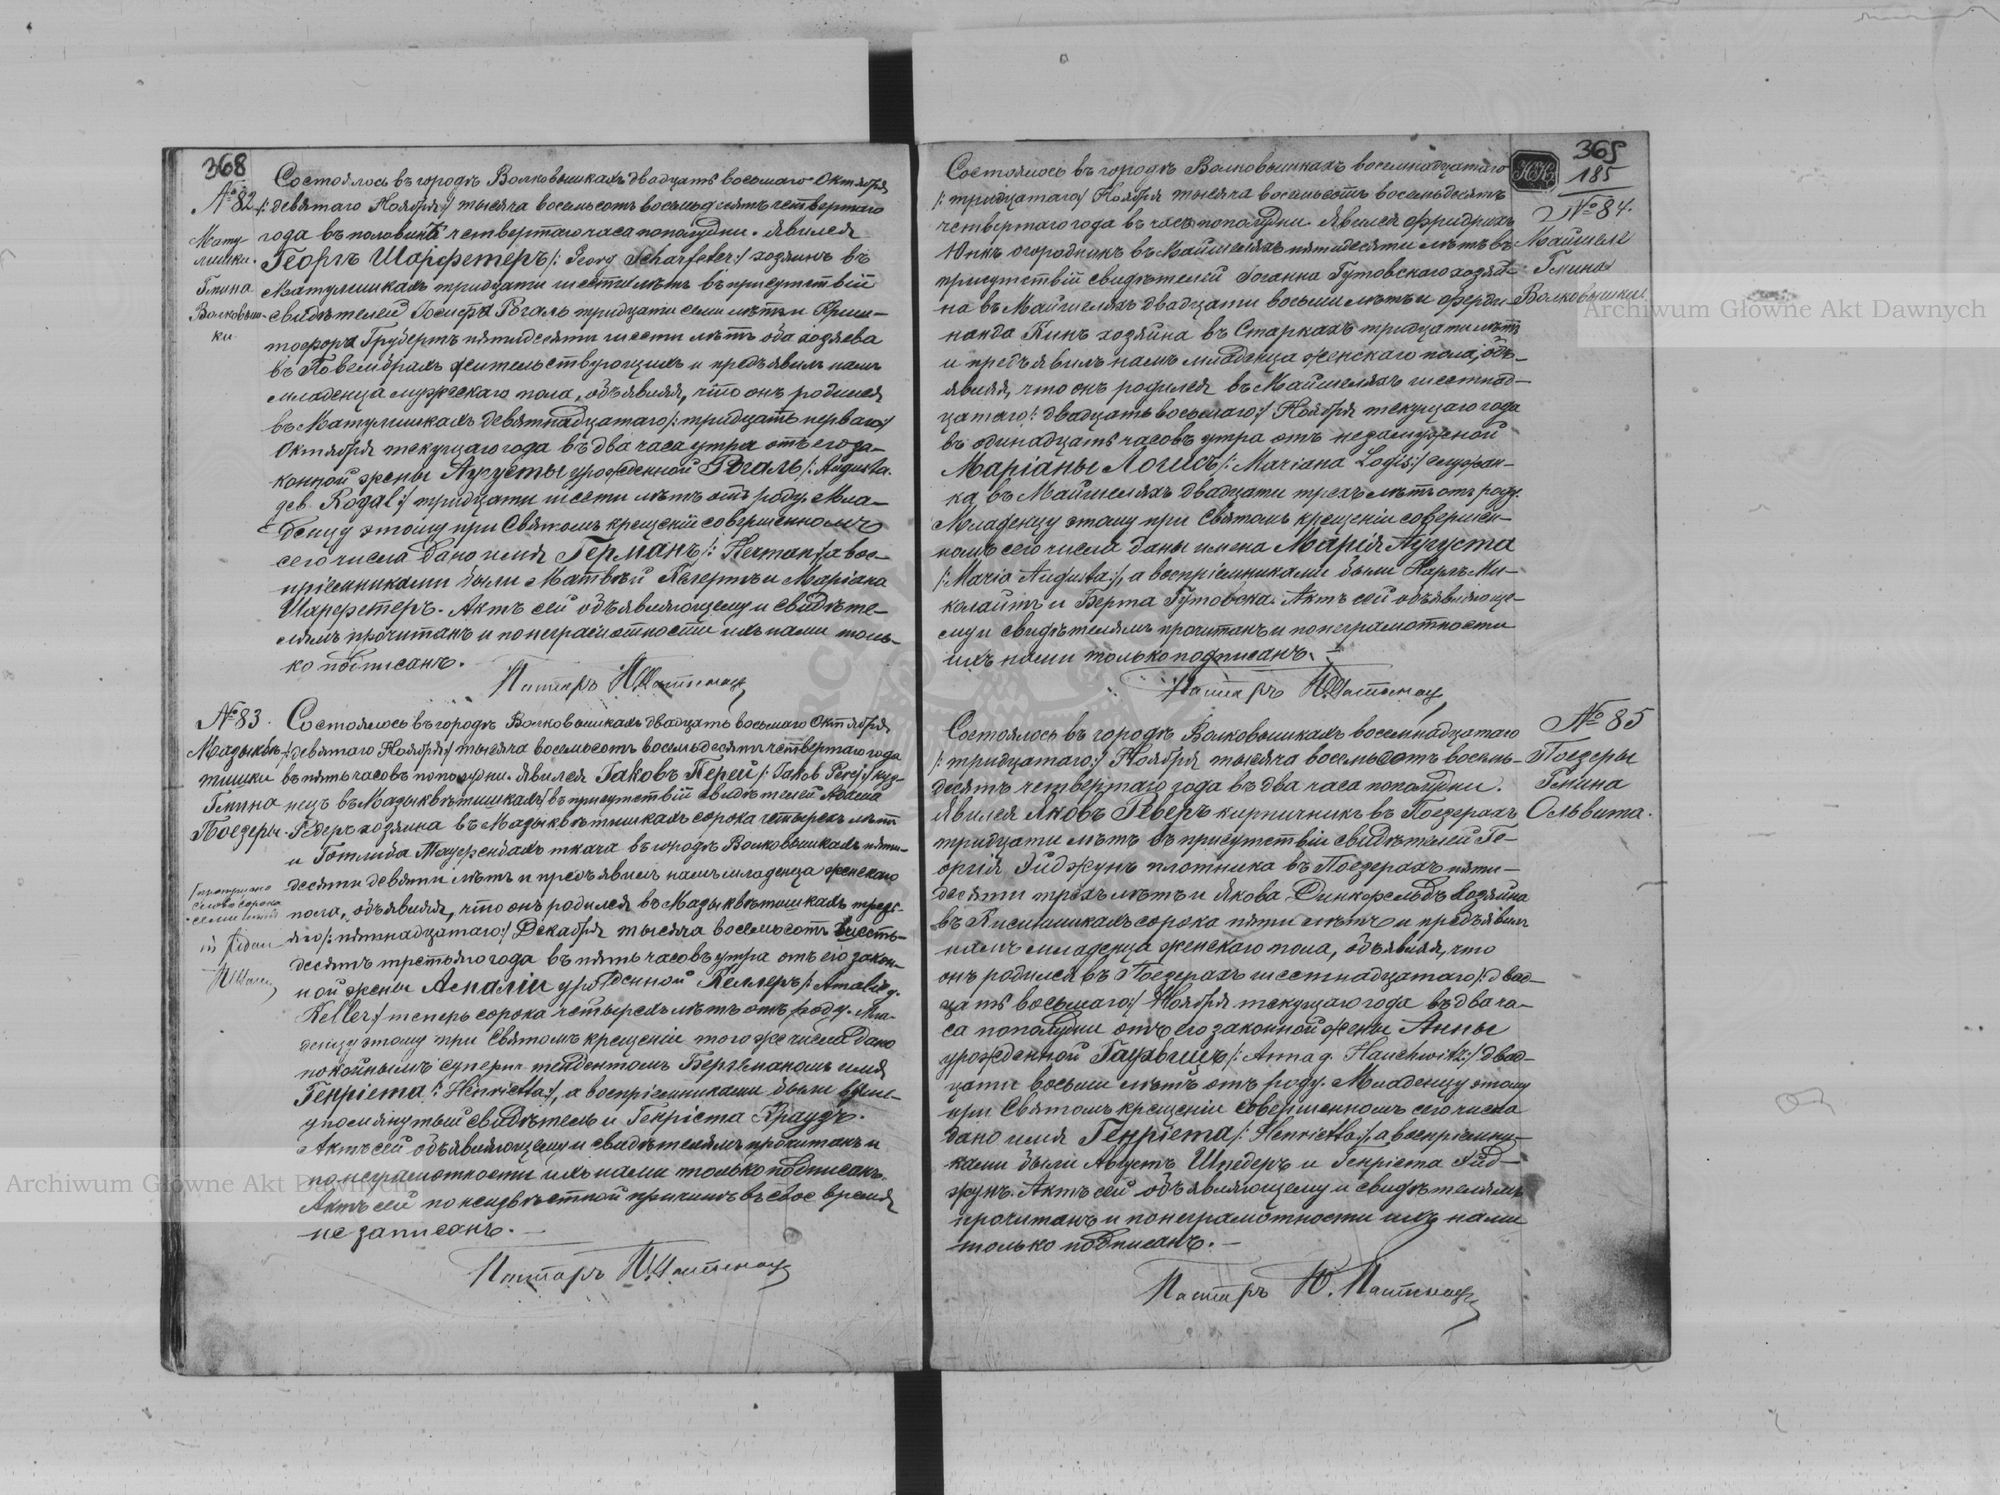 368
№ 82
Мату-
лишки.
Гмина
Волковыш-
ки
Состоялось въ городѣ Волковышкахъ двадцать восьмаго Октября
/: девятаго Ноября :/ тысяча восемьсотъ восемьдесятъ четвертаго
года въ половинѣ четвертаго часа пополудни. Явился
Георгъ Шарфетеръ /: Georg Scharfeter :/ хозяинъ въ
Матулишкахъ тридцати шести лѣтъ въ присутствіи
свидѣтелей Іосифа Рогаль тридцати семи лѣтъ и Крис-
тофора Грубертъ пятидесяти шести лѣтъ оба хозяева
въ жительствующихъ и предъявилъ намъ
младенца мужескаго пола, объявляя, что онъ родился
въ Матулишкахъ девятнадцатаго /: тридцать перваго :/
Октября текущаго года въ два часа утра отъ его за-
конной жены Аугусты урожденной Рогаль /: Augusta
gеb. Rogal :/ тридцати шести лѣтъ отъ роду. Мла-
денцу этому при Святомъ крещеніи совершенномъ
сего числа дано имя Германъ /: Herman :/ а вос-
пріемниками были Матвѣй и Маріана
Шарфетеръ. Актъ сей объявляющему и свидѣте-
лямъ прочитанъ и по неграмотности ихъ нами толь-
ко подписанъ.
Пасторъ
№ 83.
Мадыквѣ-
тишки
Гмина
Поедеры
Состоялось въ городѣ Волковышкахъ двадцать восьмаго Октября
/: девятаго Ноября :/ тысяча восемьсотъ восемьдесятъ четвертаго года
въ пять часовъ пополудни. Явился Іаковъ Перей /: Jakob Perej :/ куз-
нецъ въ Мадыквѣтишкахъ въ присутствіи свидѣтелей Адама
хозяина въ Мадыквѣтишкахъ сорока четырехъ лѣтъ
и Готлиба ткача въ городѣ Волковышкахъ пяти-
десяти девяти лѣтъ и предъявилъ намъ младенца женскаго
пола, объявляя, что онъ родился въ Мадыквѣтишкахъ треть-
яго /: пятнадцатаго :/ Декабря тысяча восемьсотъ шесть-
десятъ третьяго года въ пять часовъ утра отъ его закон-
ной жены Амаліи урожденной Келлеръ /: Amalie g.
Keller :/ теперь сорока четырехъ лѣтъ отъ роду. Мла-
денцу этому при Святомъ крещеніи того же числа дано
покойнымъ суперин-тендентомъ Бергманомъ имя
Генріета /: Henrietta :/, а воспріемниками были выше-
упомянутый свидѣтель и Генріета Краудъ.
Актъ сей объявляющему и свидѣтелямъ прочитанъ и
по неграмотности ихъ нами только подписанъ.
Актъ сей по неизвѣстной причинѣ въ свое время
не записанъ.
Пасторъ
365
185
№ 84.
Майшеле
Гмина
Волковышки
Состоялось въ городѣ Волковышкахъ восемнадцатаго
/: тридцатаго :/ Ноября тысяча восемьсотъ восемьдесятъ
четвертаго года въ часъ пополудни. Явился Фридрихъ
Юнкъ огородникъ въ Майшеляхъ пятидесяти лѣтъ въ
присутствіи свидѣтелей Іоганна Гутовскаго хозяи-
на въ Майшеляхъ двадцати восьми лѣтъ и Ферди-
нанда Кинъ хозяина въ Старкахъ тридцати лѣтъ
и предъявилъ намъ младенца женскаго пола, объ-
являя, что онъ родился въ Майшеляхъ шестнад-
цатаго /: двадцать восьмаго :/ Ноября текущаго года
въ одинадцать часовъ утра отъ незамужной
Маріаны Логисъ /: Mariana Logis :/ служан-
ка въ Майшеляхъ двадцати трехъ лѣтъ отъ роду.
Младенцу этому при Святомъ крещеніи совершен-
номъ сего числа даны имена Марія Аугуста
/: Maria Augusta :/, а воспріемниками были Карлъ Ми-
колайтъ и Берта Гутовска. Актъ сей объявляюще-
му и свидѣтелямъ прочитанъ и по неграмотности
ихъ нами только подписанъ.
Пасторъ
№ 85
Поедеры
Гмина
Ольвита.
Состоялось въ городѣ Волковышкахъ восемнадцатаго
/: тридцатаго :/ Ноября тысяча восемьсотъ восемь-
десятъ четвертаго года въ два часа пополудни.
Явился Яковъ кирпичникъ въ Поедерахъ
тридцати лѣтъ въ присутствіи свидѣтелей Ге-
оргія Эйджунъ плотника въ Поедерахъ пяти-
десяти трехъ лѣтъ и Якова Динкофельдъ хозяина
въ сорока пяти лѣтъ и предъявилъ
намъ младенца женскаго пола, объявляя, что
онъ родился въ Поедерахъ шестнадцатаго /: двад-
цать восьмаго :/ Ноября текущаго года въ два ча-
са пополудни отъ его законной жены Анны
урожденной Гаухвицъ /: Anna g. Hauchwitz :/ двад-
цати восьми лѣтъ отъ роду. Младенцу этому
при Святомъ крещеніи совершенномъ сего числа
дано имя Генріета /: Henrietta :/, а воспріемни-
ками были Августъ Шпедеръ и Генріета Эйд-
жунъ. Актъ сей объявляющему и свидѣтелямъ
прочитанъ и по неграмотности ихъ нами
только подписанъ.
Пасторъ
Archiwum Główne Akt Dawnych
Archiwum Główne Akt Dawnych